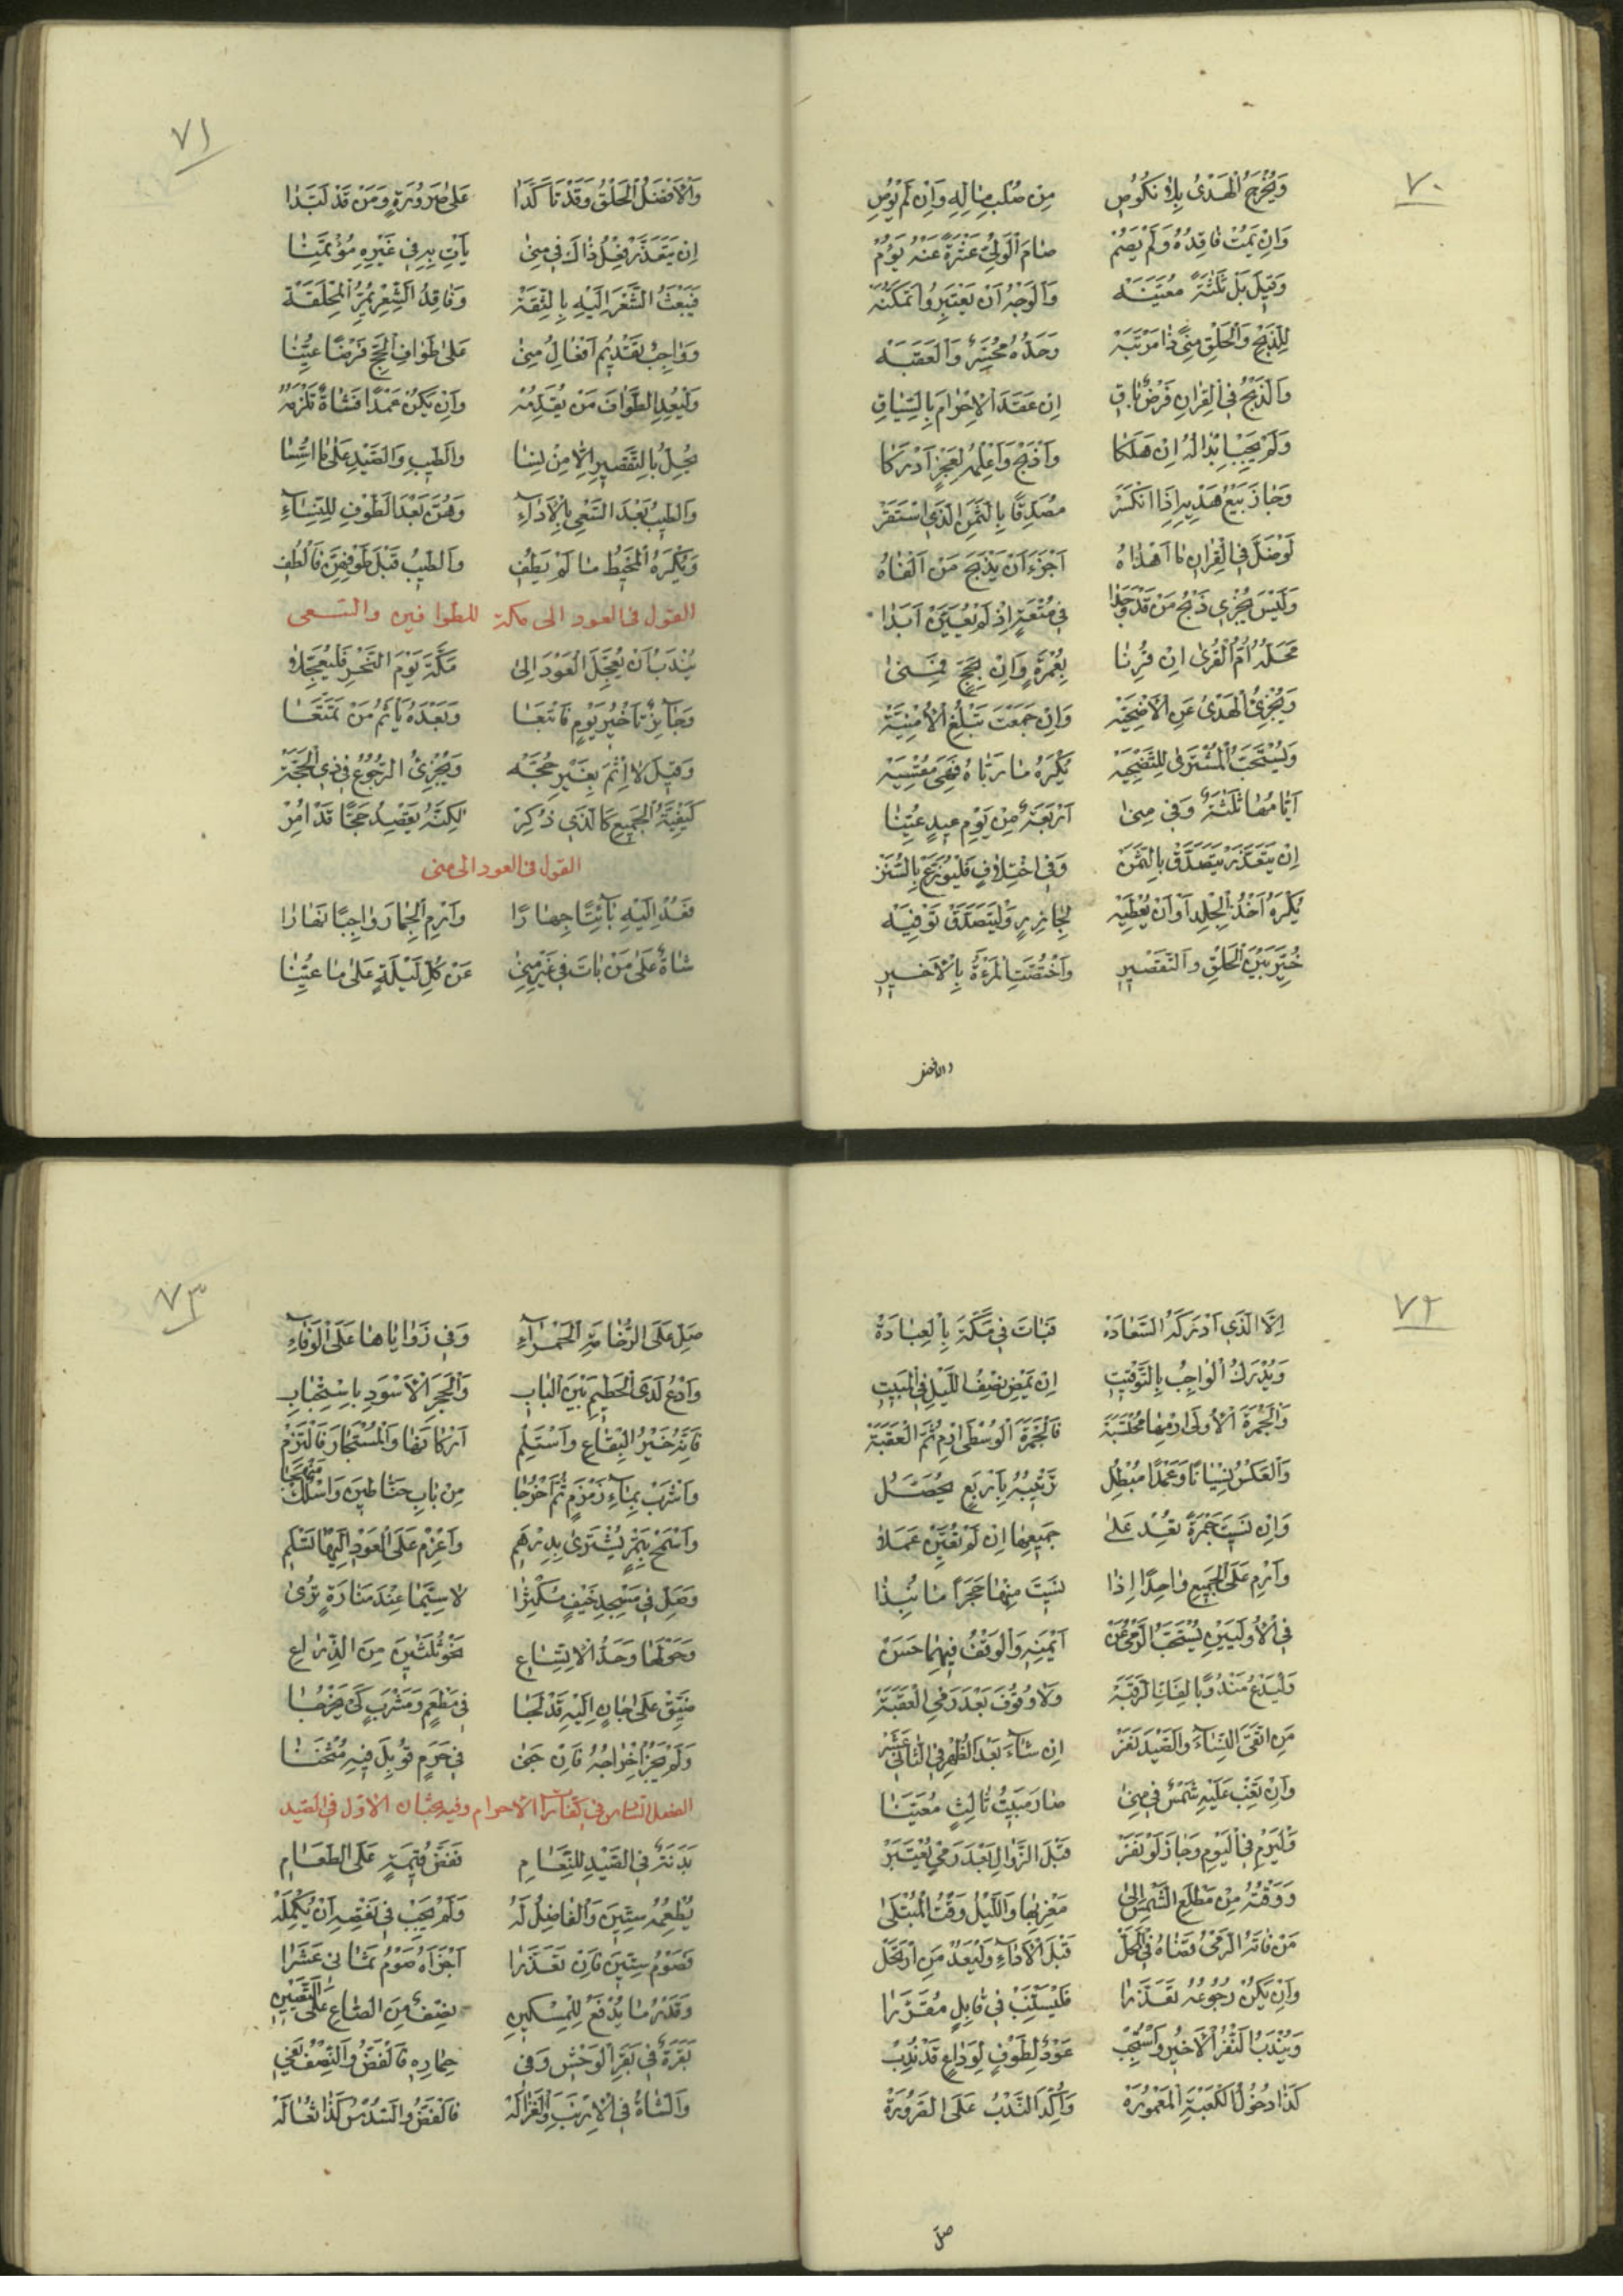 ٧٠
وَيُخْرَجُ الْهَدْىُ بِلا نُكُوُصٍ مِن صُلْبِ مٰالِهِ وَاِنْ لَمْ يُوُصِ
وَاِنْ يَمُتْ فٰاقِدُهُ وَلَمْ يَصُمْ صٰامَ الْوَلِىُّ عَشْرَةً عَنْهُ يَؤُمْ
وَقيٖلَ بَلْ ثَلٰثَةً مُعَيَّنَه وَالْوَجْهُ اَنْ يَعْتَبِرُوا تَمَكُّنَهْ
لِلذَّبْحِ وَالْحَلْقِ مِنىً ذٰا مَرْتَبَهْ وَحَدُّهُ مُحَسِّرٌ وَالْعَقَبَه
وَالذَّبْحُ فِى الْقِرٰانِ فَرْضٌ بٰاقٍ اِنْ عَقَدَ الْاِحْرٰامَ بِالسِّيٰاقِ
وَلَمْ يَجِبْ اِبْدٰالُهُ اِنْ هَلَكٰا وَاذْبَحْ وَاَعْلِمْهُ لِعَجْزٍ اَدْرَكٰا
وَجٰازَ بَيْعُ هَدْيِهِ اِذَا انْكَسَرْ مُصَدِّقًا بِالثَّمَنِ الَّذى اسْتَقَرْ
لَوْضَلَّ فِى الْقِرٰانِ مٰا اَهْدٰاهُ اَجْزَءَ اَنْ يَذْبَحَ مَنْ اَلْفٰاهُ
وَلَيْسَ يُجْزى ذَبْحُ مَنْ قَدْ وَجَدٰا فى مُتْعَةٍ اِذْ لَمْ يُعَيَّنْ اَبَدٰا
مَحَلُّهُ اُمُّ الْقُرىٰ اِنْ قُرِنٰا بِعُمْرَةٍ وَاِنْ بِحَجٍّ فَمِنىٰ
وَيُجْزِئُ الْهَدْىُ عَنِ الْاُضْحِيَّه وَاِنْ جَمَعْتَ تَبْلُغِ الْاُمْنِيَّةْ
وَيُسْتَحَبُّ الْمُشْتَرىٰ لِلتَّضْحِيَه يُكْرَهُ مٰا رَبّٰاهُ فَهْىَ مُقْسِيَه
اَيّٰامُهٰا ثَلٰثَةٌ وَفى مِنىٰ اَرْبَعَةٌ مِنْ يَوْمِ عيٖدٍ عُيِّنٰا
اِنْ يَتَعَذَّرْ يَتَصَدَّقْ بِالثَّمَنْ وَفى اخْتِلٰافٍ فَلْيُوَزَّعْ بِالسُّنَنْ
يُكْرَهُ اَخْذُ الْجِلْدِ اَوْ اَنْ يُعْطِيَه لِجٰازِرٍ وَلْيَتَصَدَّقْ تَوْفِيَه
خُيِّرَ بَيْنَ الْحَلْقِ وَالتَّقْصيٖرِ وَاخْتُصَّتِ الْمَرْءَةُ بِالْاَخيٖرِ
والافضل
٧١
وَالْاَفْضَلُ الْحَلْقُ وَقَدْ تَأَكَّدٰا عَلىٰ صَرُورَةٍ وَمَنْ قَدْ لَبَّدٰا
اِنْ يَتَعَذَّرْ فِعْلُ ذٰاكَ فى مِنىٰ يَأتِ بِهِ فى غَيْرِهِ مُؤْتَمِنٰا
فَيَبْعَثُ الشَّعْرَ اِلَيْهِ بِالثِّقَةْ وَفٰاقِدُ الشِّعْرِ يُمِرُّ الْمِحْلَقَةْ
وَوٰاجِبٌ تَقْديٖمُ اَفْعٰالِ مِنىٰ عَلىٰ طَوٰافِ الْحَجِّ فَرْضًا عُيِّنٰا
وَلْيُعِدِ الطَّوٰافَ مَنْ يُقَدِّمُهْ وَاِنْ يَكُنْ عَمْدًا فَشٰاةٌ تَلْزَمُهْ
يُحِلُّ بِالتَّقْصيٖرِ اِلّٰا مِنْ نِسٰا وَالطّيٖبِ وَالصَّيْدِ عَلىٰ مٰا اُسِّسٰا
وَالطّيٖبُ بَعْدَ السَّعْىِ بِالْاَدٰآءِ وَهُنَّ بَعْدَ الطَّوْفِ لِلنِّسٰآءِ
وَيُكْرَهُ الْمَخيٖطُ مٰا لَمْ يَطُفِ وَالطّيٖبُ قَبْلَ طَوْفِهِنَّ فَالْطُفِ
القول فى العود الى مكة للطوافين والسعى
يُنْدَبُ اَنْ يُعَجِّلَ الْعَوْدَ اِلىٰ مَكَّةَ يَوْمَ النَّحْرِ فَلْيُعَجِّلاٰ
وَجٰآئِزٌ تَأخيٖرُ يَوْمٍ فَاتْبَعٰا وَبَعْدَهُ يَأثَمُ مَنْ تَمَتَّعٰا
وَقيٖلَ لاٰ اِثْمَ بِغَيْرِ حُجَّه وَيُجْزِئُ الرُّجُوعُ فى ذى الْحِجَّةْ
كَيْفِيَّةُ الْجَميٖعِ كَالَّذى ذُكِرْ لٰكِنَّهُ يَقْصِدُ حَجًّا قَدْ اُمِرْ
القول فى العود الى منى
فَعُدْ اِلَيْهِ بٰائِتًا جِهٰارًا وَارْمِ الْجِمٰارَ وٰاجِبًا نَهٰارٰا
شٰاةٌ عَلىٰ مَنْ بٰاتَ فى غَيْرِ مِنىٰ عَنْ كُلِّ لَيْلَةٍ عَلىٰ مٰا عُيِّنٰا
٧٢
اِلَّا الَّذى اَدْرَكَهُ السَّعٰادَه فَبٰاتَ فى مَكَّةَ بِالْعِبٰادَةْ
وَيُدْرَكُ الْوٰاجِبُ بِالتَّوْقيٖتِ اِنْ يَمْضِ نِصْفُ اللَّيْلِ فِى الْمَبيٖتِ
وَالْجَمْرَةَ الْاُولىٰ ارْمِهٰا مُحْتَسِبَةْ فَالْجَمْرَةَ الْوُسْطىٰ ارْمِ ثُمَّ الْعَقَبَةْ
وَالْعَكْسُ نِسْيٰانًا وَعَمْدًا مُبْطِلُ تَرْتيٖبُهُ بِاَرْبَعٍ يُحَصَّلُ
وَاِنْ نَسيٖتَ جَمْرَةً تَعُدْ عَلىٰ جَميٖعِهٰا اِنْ لَمْ تُعَيَّنْ عَمَلاٰ
وَارْمِ عَلَى الْجَميٖعِ وٰاحِدًا اِذٰا نَسيٖتَ مِنْهٰا حَجَرًا مٰا نُبِذٰا
فِى الْاُولَيَيْنِ يُسْتَحَبُّ الرَّمْىُ عَنْ اَيْمَنِهِ وَالْوَقْفُ فيٖهِمٰا حَسَنْ
وَلْيَدْعُ مَنْدُوبًا لِفَكِّ الرَّقَبَةْ وَلاٰ وُقُوفَ بَعْدَ رَمْىِ الْعَقَبَةْ
مَنِ اتَّقَى النِّسٰآءَ وَالصَّيْدَ نَفَرْ اِنْ شٰآءَ بَعْدَ الظُّهْرِ فِى الثّٰانى عَشَرْ
وَاِنْ تَغِبْ عَلَيْهِ شَمْسٌ فى مِنىٰ صٰارَ مَبيٖتُ ثٰالِثٍ مُعَيَّنٰا
وَلْيَرْمِ فِى الْيَوْمِ وَجٰازَ لَوْ نَفَرْ قَبْلَ الزَّوٰالِ بَعْدَ رَمْىٍ يُعْتَبَرْ
وَوَقْتُهُ مِنْ مَطْلَعِ الشَّمْسِ اِلىٰ مَغْرِبِهٰا وَاللَّيْلُ وَقْتُ الْمُبْتَلىٰ
مَنْ فٰاتَهُ الرَّمْىُ قَضٰاهُ فِى الْمَحَلّْ قَبْلَ الْاَدٰآءِ وَلْيَعُدْ مَنِ ارْتَحَلْ
وَاِنْ يَكُنْ رُجُوعُهُ تَعَذَّرٰا فَلْيَسْتَنِبْ فى قٰابِلٍ مُقَرَّرٰا
وَيُنْدَبُ النَّفْرُ الْاَخيٖرُ وَاسْتُحِبّْ عَوْدٌ لِطَوْفٍ لِوَدٰاعٍ قَدْ نُدِبْ
كَذٰا دُخُولُ الْكَعْبَةِ الْمَعْمُورَهْ وَاُكِّدَ النَّدْبُ عَلَى الصَّرُورَةْ
صلّ
٧٣
صَلِّ عَلَى الرُّخٰامَةِ الْحَمْرٰآءِ وَفى زَوٰايٰاهٰا عَلَى الْوَفٰآءِ
وَادْعُ لَدَى الْحَطيٖمِ بَيْنَ الْبٰابِ وَالْحَجَرِ الْاَسْوَدِ بِاسْتِحْبٰابِ
فَاِنَّهُ خَيْرُ الْبِقٰاعِ وَاسْتَلِمْ اَرْكٰانَهٰا وَالْمُسْتَجٰارَ فَالْتَزِمْ
وَاشْرَبْ بِمٰآءِ زَمْزَمٍ ثُمَّ اخْرُجٰا مِنْ بٰابِ حَنّٰاطيٖنَ وَاسْلُكْ مَنْهَجًا
وَاسْمَحْ بِتَمْرٍ يُشْتَرىٰ بِدِرْهَمٍ وَاعْزِمْ عَلَى الْعَوْدِ اِلَيْهٰا تَسْلَمِ
وَصَلِّ فى مَسْجِدِ خَيْفٍ مُكْثِرًا لاٰ سِيَّمٰا عِنْدَ مَنٰارَةٍ تُرىٰ
وَحَوْلَهٰا وَحَدُّ الْاِتِّسٰاعِ نَحْوُ ثُلٰثيٖنَ مِنَ الذِّرٰاعِ
ضَيِّقْ عَلىٰ جٰانٍ اِلَيْهِ قَدْ لَجٰا فى مَطْعَمٍ وَمَشْرَبٍ كَىْ يَخْرُجٰا
وَلَمْ يَجُزْ اِخْرٰاجُهُ فَاِنْ جَنىٰ فى حَرَمٍ قُوبِلَ فيٖهِ مُثْخَنٰا
الفصل السادس فى كفارات الاحرام وفيه بحثان الاول فى الصيد
بَدَنَةٌ فِى الصَّيْدِ لِلنَّعٰامِ فَفَضُّ قيٖمَةٍ عَلَى الطَّعٰامِ
يُطْعِمُهُ سِتّيٖنَ وَالْفٰاضِلُ لَهُ وَلَمْ يَجِبْ فى نَقْصِهِ اَنْ يُكْمِلَهْ
فَصَوْمُ سِتّيٖنَ فَاِنْ تَعَذَّرٰا اَجْزَاَهُ صَوْمُ ثَمٰانى عَشَرٰا
وَقَدْرُ مٰا يُدْفَعُ لِلْمِسْكيٖنِ نِصْفٌ مِنَ الصّٰاعِ عَلَى التَّعْييٖنِ
بَقَرَةٌ فى بَقَرِ الْوَحْشِ وَفى حِمٰارِهِ فَالْفَضُّ وَالنِّصْفُ يَفى
وَالشّٰاةُ فِى الْاَرْنَبِ وَالْغَزٰالَهْ فَالْفَضُّ وَالسُّدْسُ كَذٰا ثُعٰالَهْ